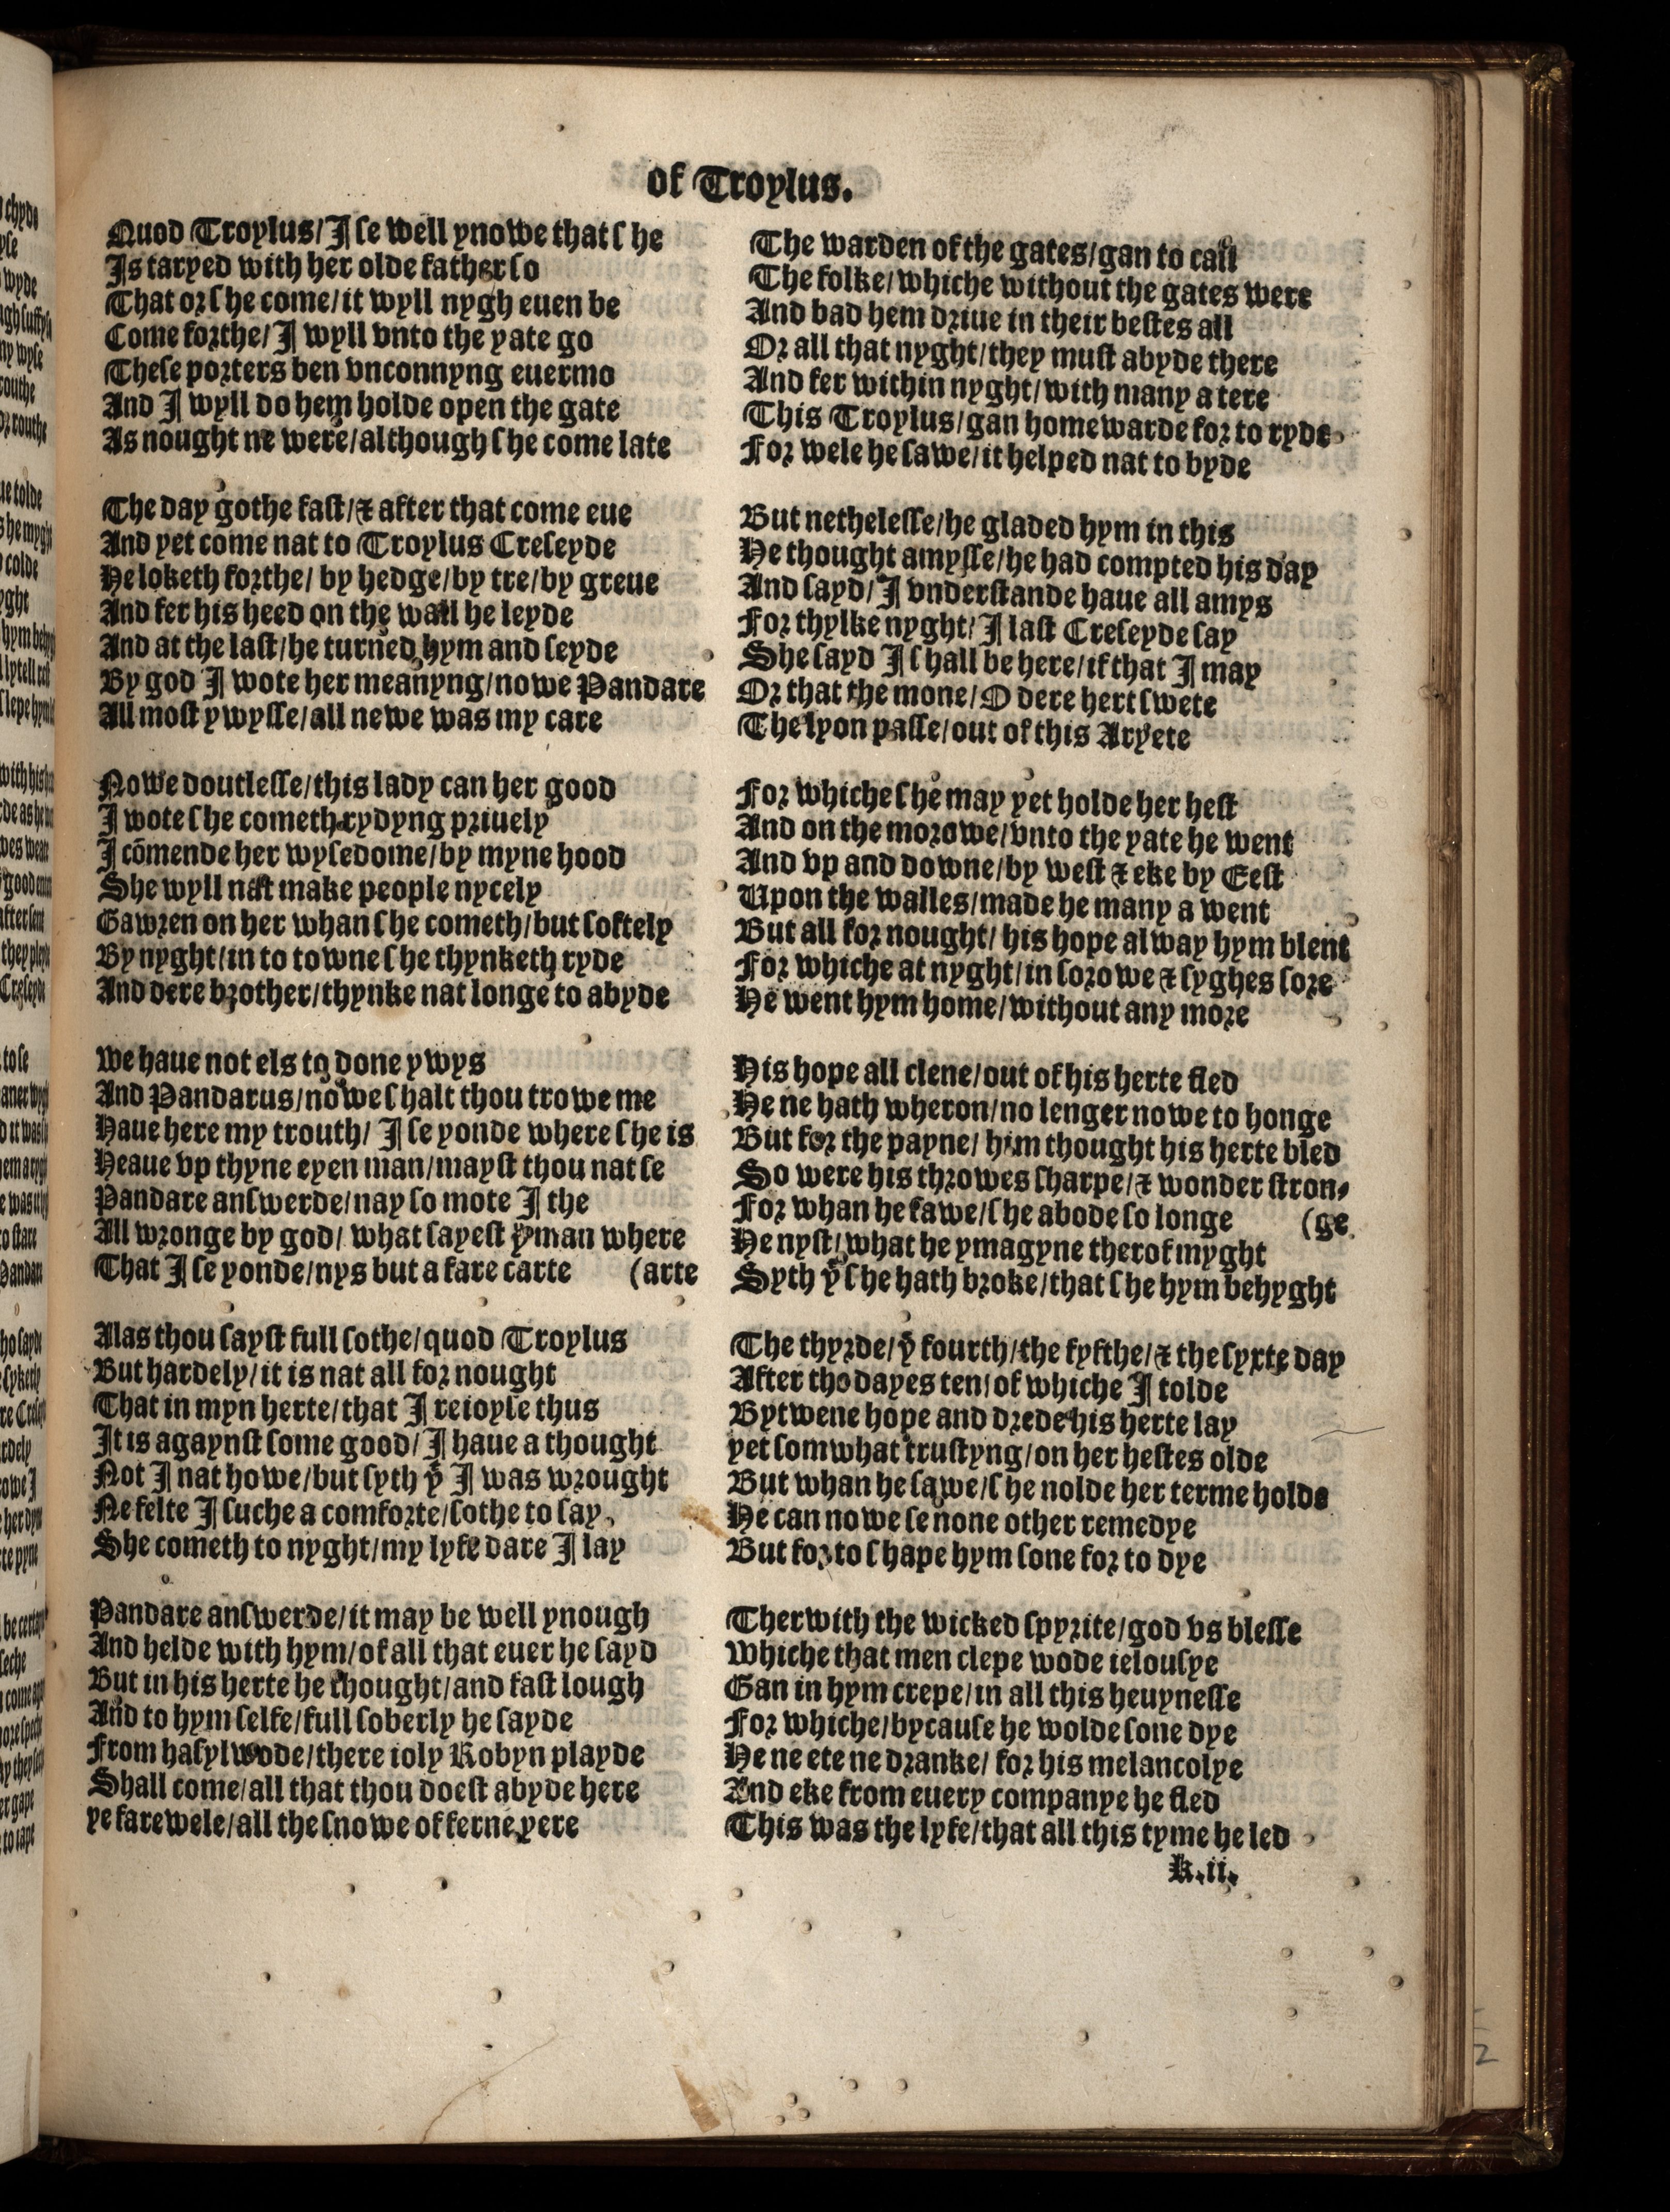 of Troylus.
Quod Troylus/ I se well ynowe that she
Is taryed with her olde father so
That or she come/ it wyll nygh euen be
Come forthe/ I wyll vnto the yate go
These porters ben vnconnyng euermo
And I wyll do hem holde open the gate
As nought ne were/ although she come late
The day gothe fast/ & after that come eue
And yet come nat to Troylus Creseyde
He loketh forthe/ by hedge/ by tre/ by greue
And fer his heed on the wall he leyde
And at the last/ he turned hym and seyde
By god I wote her meanyng/ nowe Pandare
All most ywysse/ all newe was my care
Nowe doutlesse/ this lady can her good
I wote she cometh rydyng priuely
I cōmende her wysedome/ by myne hood
She wyll nat make people nycely
Gawren on her whan she cometh/ but softely
By nyght/ in to towne she thynketh ryde
And dere brother/ thynke nat longe to abyde
We haue not els to done ywys
And Pandarus/ nowe shalt thou trowe me
Haue here my trouth/ I se yonde where she is
Heaue vp thyne eyen man/ mayst thou nat se
Pandare answerde/ nay so mote I the
All wronge by god/ what sayest yͧ man where
That I se yonde/ nys but a fare carte (arte
Alas thou sayst full sothe/ quod Troylus
But hardely/ it is nat all for nought
That in myn herte/ that I reioyse thus
It is agaynst some good/ I haue a thought
Not I nat howe/ but syth yͭ I was wrought
Ne felte I suche a comforte/ sothe to say
She cometh to nyght/ my lyfe dare I lay
Pandare answerde/ it may be well ynough
And helde with hym/ of all that euer he sayd
But in his herte he thought/ and fast lough
And to hym selfe/ full soberly he sayde
From hasylwode/ there ioly Robyn playde
Shall come/ all that thou doest abyde here
Ye farewele/ all the snowe of ferne yere
The warden of the gates/ gan to call
The folke/ whiche without the gates were
And bad hem driue in their bestes all
Or all that nyght/ they must abyde there
And fer within nyght/ with many a tere
This Troylus/ gan homewarde for to ryde
For wele he sawe/ it helped nat to byde
But nethelesse/ he gladed hym in this
He thought amysse/ he had compted his day
And sayd/ I vnderstande haue all amys
For thylke nyght/ I last Creseyde say
She sayd I shall be here/ if that I may
Or that the mone/ O dere hert swete
The lyon passe/ out of this Aryete
For whiche she may yet holde her hest
And on the morowe/ vnto the yate he went
And vp and downe/ by west & eke by Eest
Upon the walles/ made he many a went
But all for nought/ his hope alway hym blent
For whiche at nyght/ in sorowe & syghes sore
He went hym home/ without any more
His hope all clene/ out of his herte fled
He ne hath wheron/ no lenger nowe to honge
But for the payne/ him thought his herte bled
So were his throwes sharpe/ & wonder stron⸗
For whan he sawe/ she abode so longe (ge
He nyst/ what he ymagyne therof myght
Syth yͭ she hath broke/ that she hym behyght
The thyrde/ yͤ fourth/ the fyfthe/ & the syxte day
After tho dayes ten/ of whiche I tolde
Bytwene hope and drede his herte lay
Yet somwhat trustyng/ on her hestes olde
But whan he sawe/ she nolde her terme holde
He can nowe se none other remedye
But for to shape hym sone for to dye
Therwith the wicked spyrite/ god vs blesse
Whiche that men clepe wode ielousye
Gan in hym crepe/ in all this heuynesse
For whiche/ bycause he wolde sone dye
He ne ete ne dranke/ for his melancolye
And eke from euery companye he fled
This was the lyfe/ that all this tyme he led
k.ii.